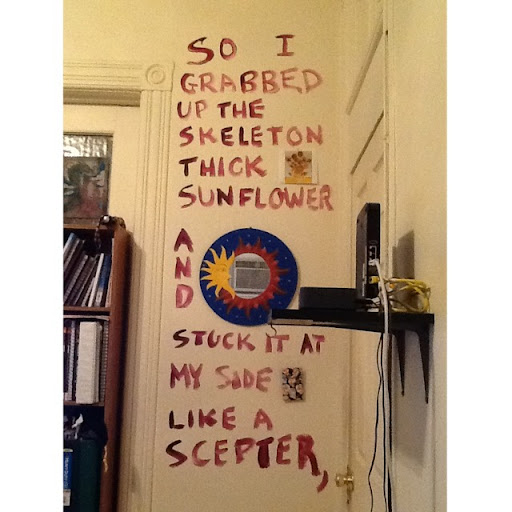 SO I
GRABBED
UP THE
SKELETON
THICK
SUNFLOWER
AND
STUCK IT AT
MY SIDE
LIKE A
SCEPTER,